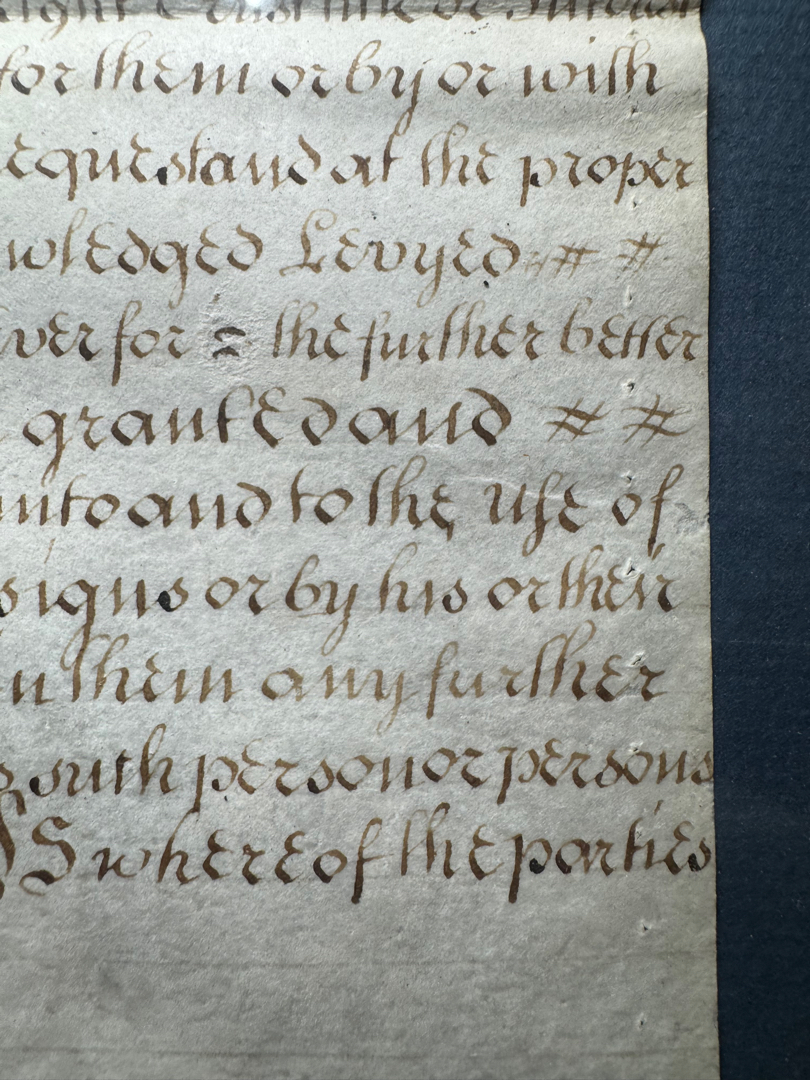 ight Trust time or Interest
for them or by or with
equest and at the proper
wledged Levyed # #
ver for = the further better
granted and # #
unto and to the Use of
signs or by his or their
n them any further
such person or persons
S whereof the parties